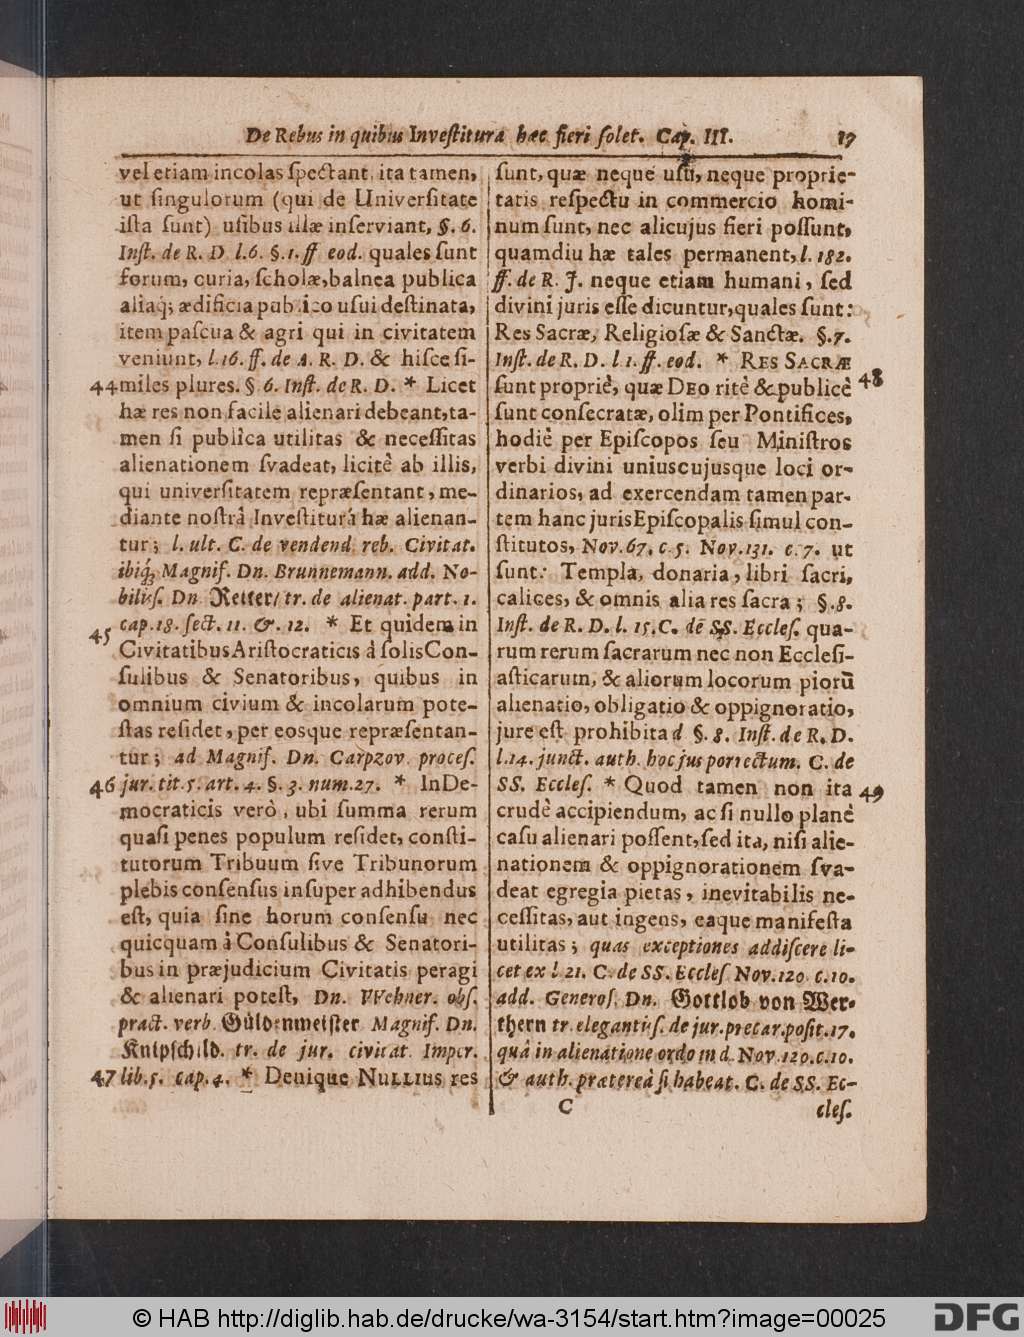 De Rebus in quibus Inveſtitura hæc fieri ſolet. Cap. III. 17
vel etiam incolas ſpectant, ita tamen,
ut ſingulorum (qui de Univerſitate
iſta ſunt) uſibus illæ inſerviant, §. 6.
Inſt. de R. D. l. 6. §. 1. ff eod. quales ſunt
forum, curia, ſcholæ, balnea publica
aliaq; ædificia publico uſui deſtinata,
item paſcua & agri qui in civitatem
veniunt, l. 16. ff. de A. R. D. & hiſce ſi-
44 miles plures. § 6. Inſt. de R. D. * Licet
hæ res non facile alienari debeant, ta-
men ſi publica utilitas & neceſſitas
alienationem ſvadeat, licitè ab illis,
qui univerſitatem repræſentant, me-
diante noſtrâ Inveſtiturâ hæ alienan-
tur; l. ult. C. de vendend. reb. Civitat.
ibiq; Magnif. Dn. Brunnemann. add. No-
biliſſ. Dn. Reiter/ tr. de alienat. part. 1.
45 cap. 18. ſect. 11. &. 12. * Et quidem in
Civitatibus Ariſtocraticis à ſolis Con-
ſulibus & Senatoribus, quibus in
omnium civium & incolarum pote-
ſtas reſidet, per eosque repræſentan-
tur; ad Magnif. Dn. Carpzov. proceſ.
46 jur. tit. 5. art. 4. §. 3. num. 27. * In De-
mocraticis verò, ubi ſumma rerum
quaſi penes populum reſidet, conſti-
tutorum Tribuum ſive Tribunorum
plebis conſenſus inſuper adhibendus
eſt, quia ſine horum conſenſu nec
quicquam à Conſulibus & Senatori-
bus in præjudicium Civitatis peragi
& alienari poteſt, Dn. VVehner. obſ.
pract. verb. Güldenmeiſter Magnif. Dn.
Knipſchild. tr. de jur. civitat. Imper.
47 lib. 5. cap. 4. * Denique NULLIUS res
ſunt, quæ neque uſu, neque proprie-
tatis reſpectu in commercio homi-
num ſunt, nec alicujus fieri poſſunt,
quamdiu hæ tales permanent, l. 182.
ff. de R. J. neque etiam humani, ſed
divini juris eſſe dicuntur, quales ſunt:
Res Sacræ, Religioſæ & Sanctæ. §. 7.
Inſt. de R. D. l 1. ff. eod. * RES SACRÆ 48
ſunt propriè, quæ DEO ritè & publicè
ſunt conſecratæ, olim per Pontifices,
hodiè per Epiſcopos ſeu Miniſtros
verbi divini uniuscujusque loci or-
dinarios, ad exercendam tamen par-
tem hanc juris Epiſcopalis ſimul con-
ſtitutos, Nov. 67. c. 5. Nov. 131. c. 7. ut
ſunt: Templa, donaria, libri ſacri,
calices, & omnis alia res ſacra; §. 8.
Inſt. de R. D. l. 15. C. de SS. Eccleſ. qua-
rum rerum ſacrarum nec non Eccleſi-
aſticarum, & aliorum locorum piorū
alienatio, obligatio & oppignoratio,
jure eſt prohibita d §. 8. Inſt. de R. D.
l. 14. junct. auth. hoc jus porrectum. C. de
SS. Eccleſ. * Quod tamen non ita 49
crudè accipiendum, ac ſi nullo planè
caſu alienari poſſent, ſed ita, niſi alie-
nationem & oppignorationem ſva-
deat egregia pietas, inevitabilis ne-
ceſſitas, aut ingens, eaque manifeſta
utilitas; quas exceptiones addiſcere li-
cet ex l. 21. C. de SS. Eccleſ Nov. 120. c. 10.
add. Generoſ. Dn. Gottlob von Wer-
thern tr. elegantiſſ. de jur. precar. poſit. 17.
quâ in alienatione ordo in d. Nov. 120. c. 10.
& auth. prætereà ſi habeat. C. de SS. Ec-
C cleſ.
© HAB http://diglib.hab.de/drucke/wa-3154/start.htm?image=00025
DFG